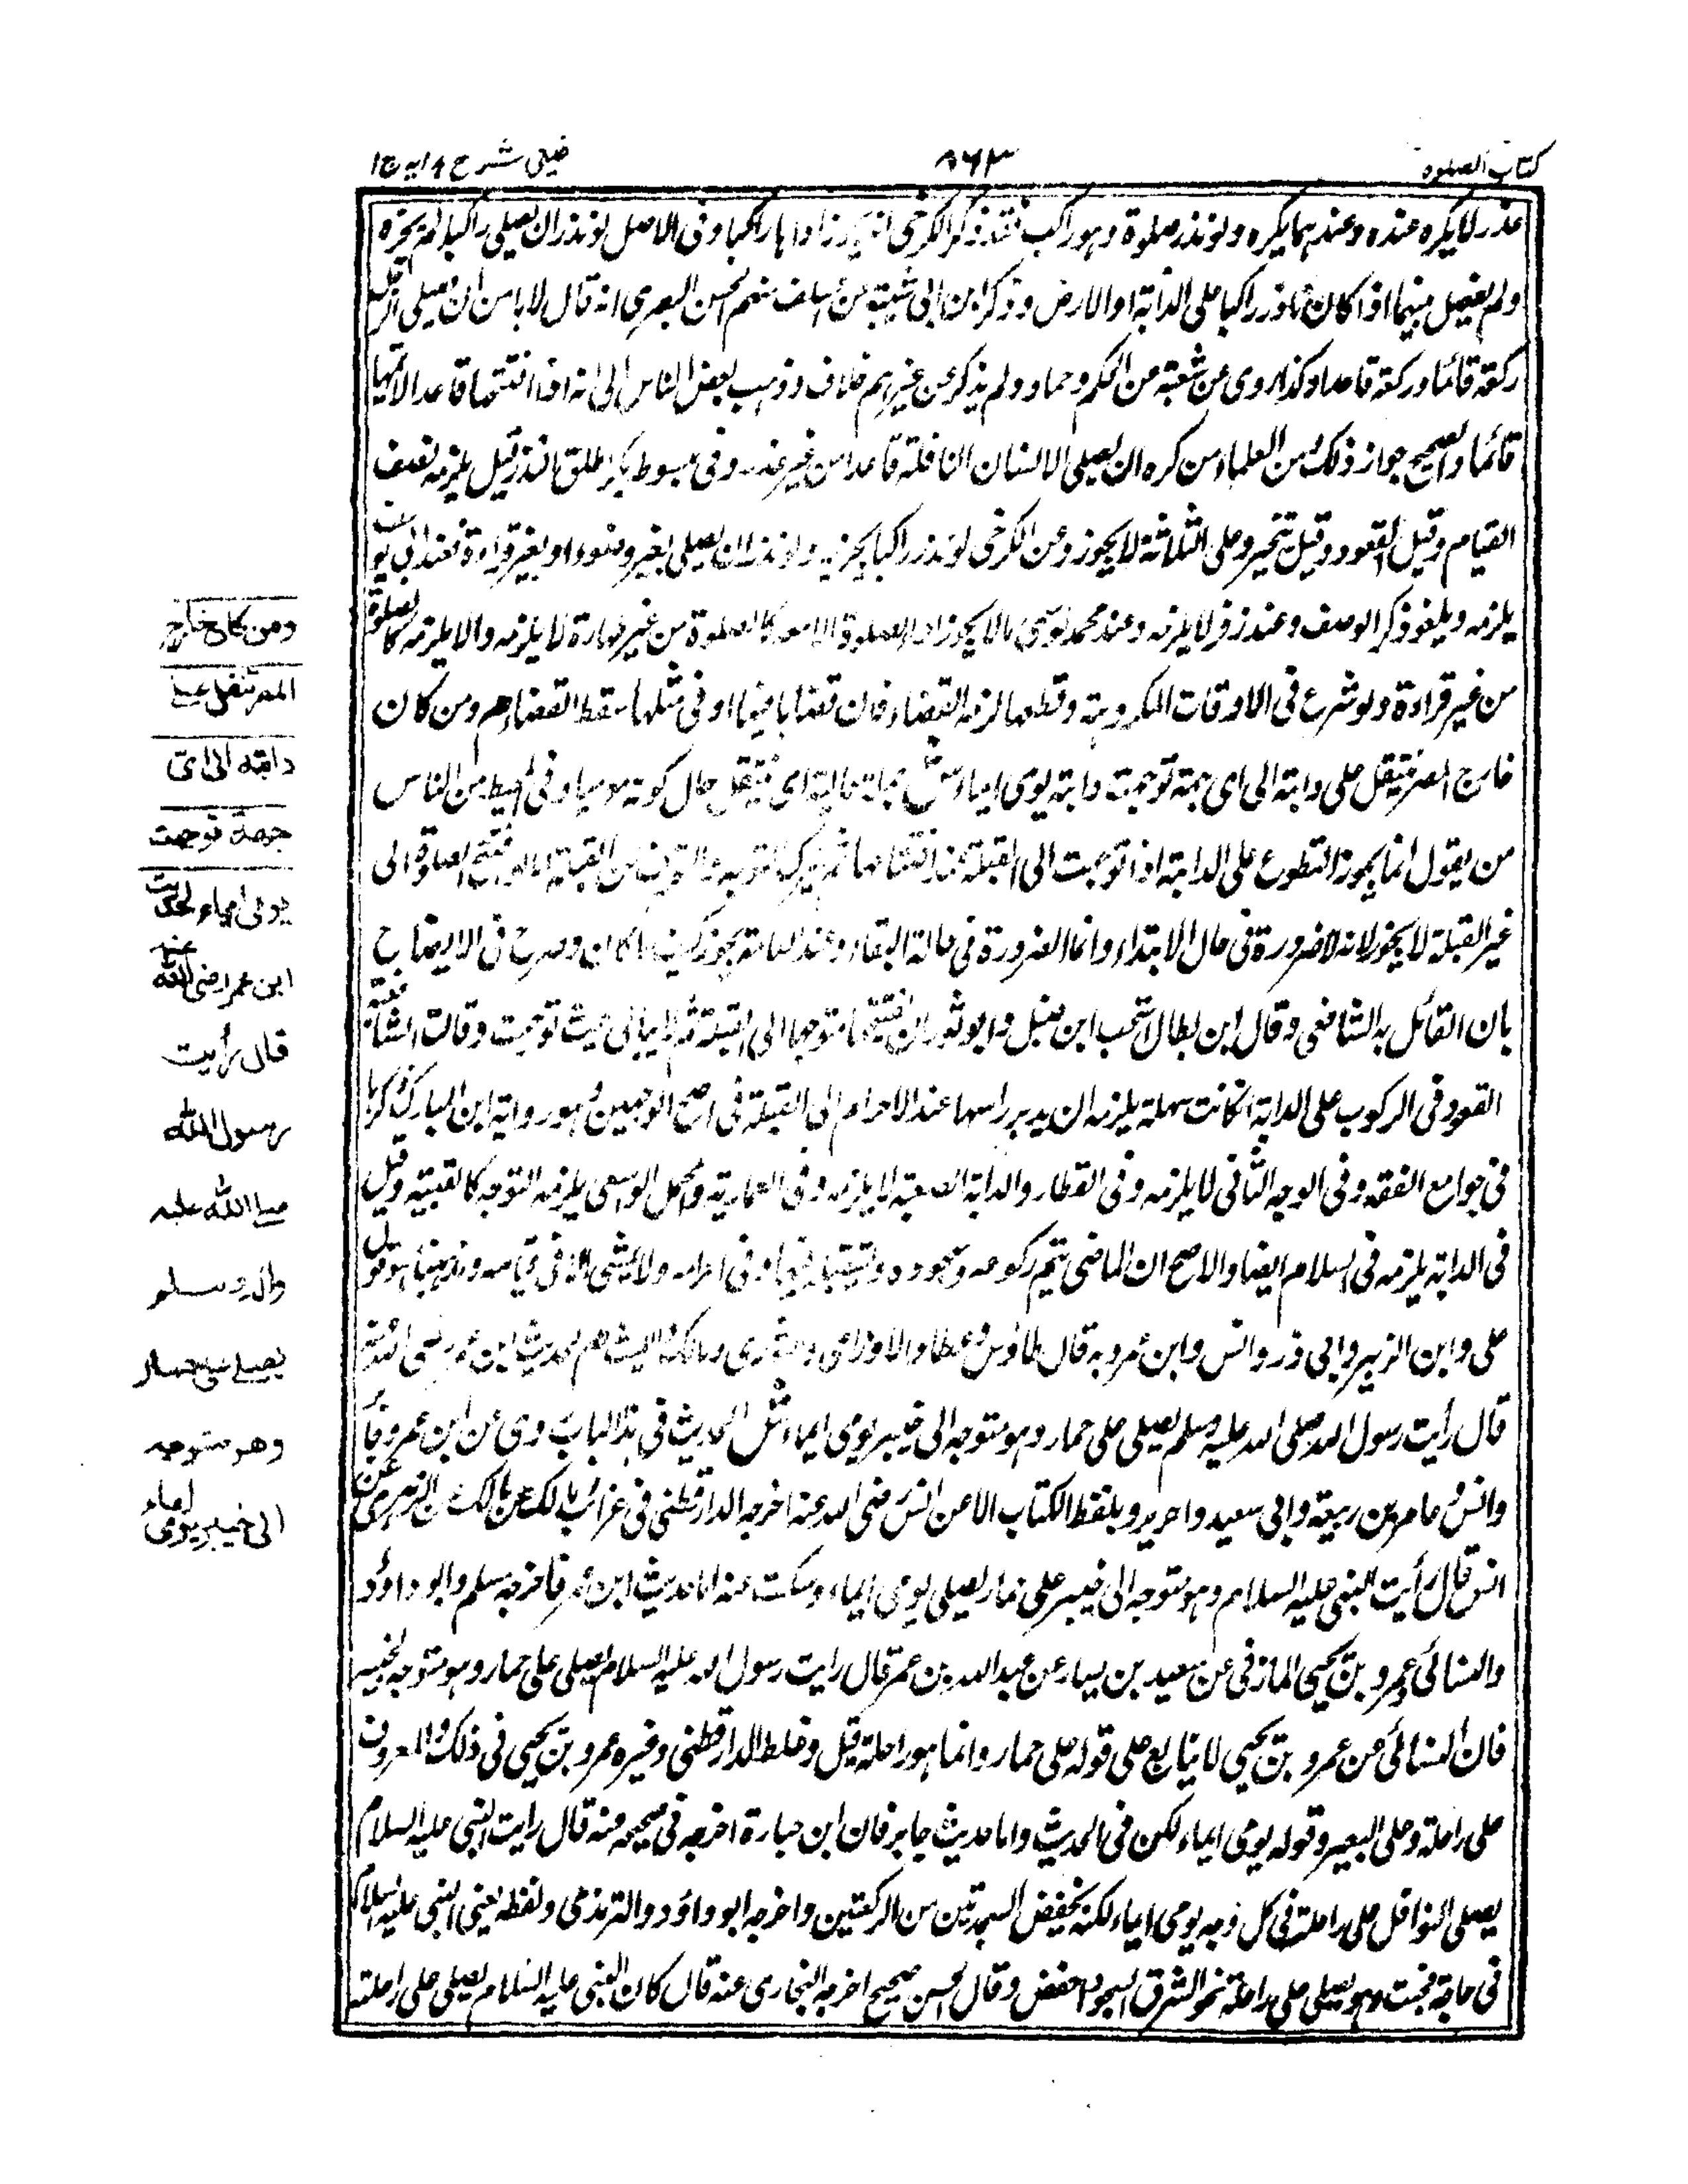 كتاب الصلوة
٨٦٣
عينى شرح هدايه ج ١
عذر لا يكره عنده وعندهما يكره ولو نذر صلوة وهو راكب فقد ذكر الكرخى اداها راكبا وفى الاصل لو نذر ان يصلى راكبا لم يجزه
ولم يفصل بينهما اذا كان الناذر راكبا على الدابة او الارض وذكر ابن ابى شيبة عن السلف منهم الحسن البصرى انه قال لا باس ان يصلى الرجل
ركعة قائما وركعة قاعدا وكذا روى عن شعبة من الحكم وحماد ولم يذكر عن غيرهم خلاف وذهب بعض الناس الى انه اذا افتتحها قاعدا لا يتمها
قائما والصحيح جواز ذلك ومن العلماء من كره ان يصلى الانسان النافلة قاعدا من غير عذر وفى مبسوط بكر اطلق النذر قيل يلزمه بصف
القيام وقيل القعود وقيل تخير وعلى الثلاثة لا يجوز وعن الكرخى لو نذر راكبا يجزيه ولو نذر ان يصلى بغير وضوء او بغير قراءة فعند ابى يوسف
يلزمه ويلغو ذكر الوصف وعند زفر لا يلزمه وعند محمد ان سمى ما لا يجوز اداء الصلوة الا معه كالصلوة من غير طهارة لا يلزمه والا يلزمه كالصلوة
من غير قراءة ولو شرع فى الاوقات المكروهة وقطعها لزمه القضاء فان قضاها فيها او فى مثلها سقط القضاء م ومن كان
خارج المصر يتنفل على دابته الى اى جهة توجهت دابته يومى ايماء ش جملة حالية اى يتنفل حال كونه موميا وفى المحيط من الناس
من يقول انما يجوز التطوع على الدابة اذا توجهت الى القبلة عند افتتاحها ثم يتركها لتوجه والانحراف عن القبلة اما لو افتتح الصلوة الى
غير القبلة لا يجوز لانه لا ضرورة فى حال الابتداء وانما الضرورة فى حالة البقاء وعند العامة يجوز كيف ما كان وصرح فى الايضاح
بان القائل به الشافعى وقال ابن بطال استحب ابن حنبل وابو ثور ان يفتتحها متوجها الى القبلة ثم لا يبالى حيث توجهت وقالت الشافعية
القعود فى الركوب على الدابة ان كانت سهلة يلزمه ان يدير راسها عند الاحرام الى القبلة فى اصح الوجهين وهو رواية ابن المبارك ذكرها
فى جوامع الفقه وفى الوجه الثانى لا يلزمه وفى القطار والدابة الصعبة لا يلزمه وفى العمارية والمحمل الواسع يلزمه التوجه كالقبلية وقيل
فى الدابة يلزمه فى السلام ايضا والاصح ان الماضى يتم ركوعه وسجوده ويستقبل فيهما وفى احرامه ولا يمشى الا فى قيامه ومذهبنا هو قول
على وابن الزبير وابى ذر وانس وابن عمر وبه قال طاوس وعطاء والاوزاعى والثورى ومالك والليث م لحديث ابن عمر رضى الله عنه
قال رأيت رسول الله صلى الله عليه وسلم يصلى على حمار وهو متوجه الى خيبر يومى ايماء ش الحديث فى هذا الباب روى عن ابن عمر وجابر
وانس وعامر بن ربيعة وابى سعيد واخرين وبلفظ الكتاب الا عن انس رضى الله عنه اخرجه الدارقطنى فى غرائب مالك عن مالك عن الزهرى عن
انس قال رأيت النبى عليه السلام وهو متوجه الى خيبر على حمار يصلى يومى ايماء وسكت عنه اما حديث ابن عمر فاخرجه مسلم وابو داؤد
والنسائى عمرو بن يحيى المازنى عن سعيد بن يسار عن عبد الله بن عمر قال رايت رسول الله عليه السلام يصلى على حمار وهو متوجه لخيبر
فان النسائى عن عمرو بن يحيى لا يتابع على قوله على حمار وانما هو راحلة قيل وغلط الدارقطنى وغيره عمرو بن يحيى فى ذلك والمعروف
على راحلة وعلى البعير وقوله يومى ايماء لكن فى الحديث واما حديث جابر فان ابن حبارة اخرجه فى صحيحه منه قال رايت النبى عليه السلام
يصلى النوافل على راحلته فى كل وجه يومى ايماء لكنه يخفض السجدتين من الركعتين واخرجه ابو داؤد والترمذى ولفظه بعثنى النبى عليه السلام
فى حاجة فجئت وهو يصلى على راحلته نحو المشرق السجود اخفض وقال الحسن صحيح اخرجه البخارى عنه قال كان النبى عليه السلام يصلى على راحلته
ومن كان خارج
المصر تنفل على
دابته الى اى
جهة توجهت
يومى ايماء لحديث
ابن عمر رضى الله عنه
قال رأيت
رسول الله
صلى الله عليه
واله وسلم
يصلى على حمار
وهو متوجه
الى خيبر يومى ايماء